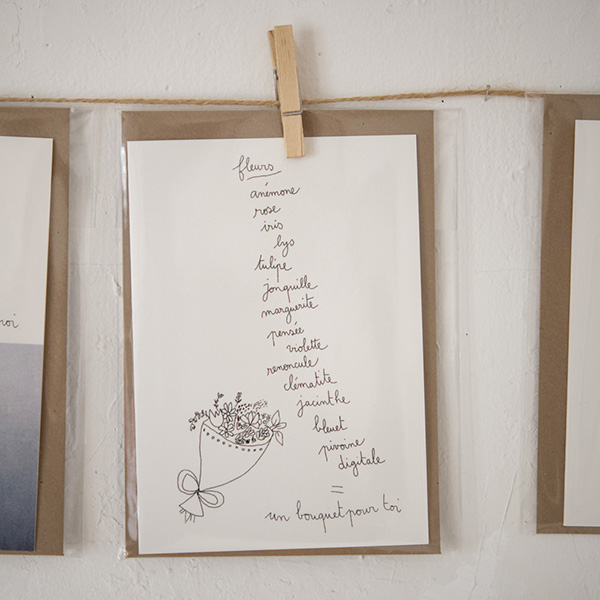 fleurs
anémone
rose
iris
lys
tulipe
jonquille
marguerite
pensée
violette
renoncule
clématite
jacinthe
bleuet
pivoine
digitale
=
un bouquet pour toi